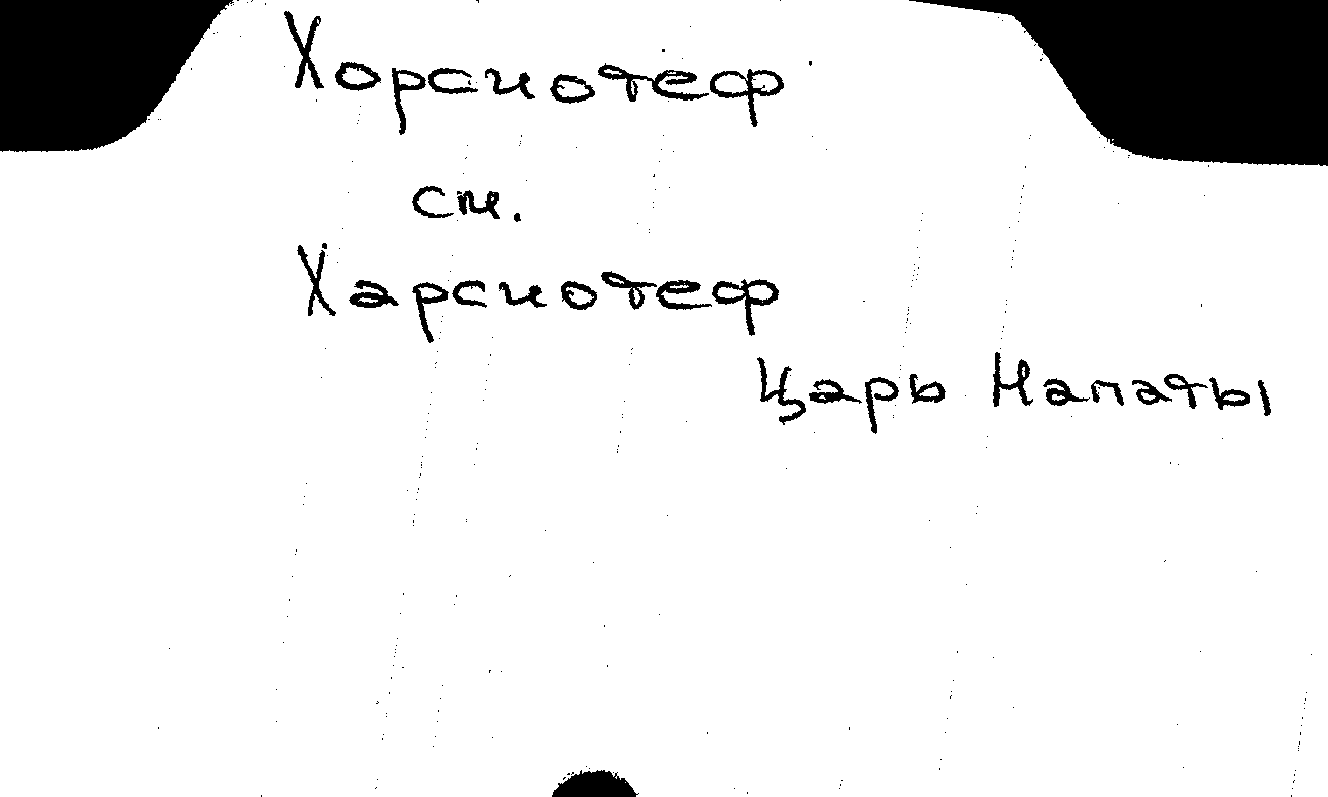 Хорсиотеф
см.
Харсиотеф
Царь Напаты